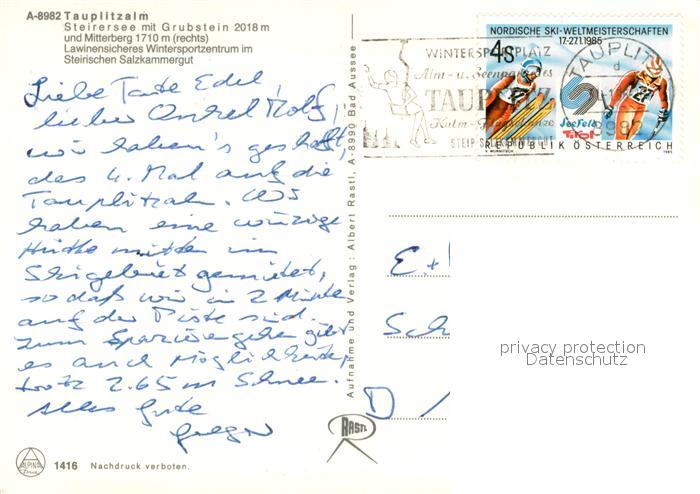 A-8982 Tauplitzalm
Steirersee mit Grubstein 2018 m
und Mitterberg 1710 m (rechts)
Lawinensicheres Wintersportzentrum im
Steirischen Salzkammergut
Liebe Tante Edel,
lieber Onkel Rolf,
wir haben's geschafft,
das 4. Mal auf die
Tauplitzalm. Wir
haben eine winzige
Hütte mitten im
Skigebiet gemietet,
so daß wir in 2 Minuten
auf der Piste sind.
Zum Spazierengehen gibt
es auch Möglichkeiten
trotz 2.65 m Schnee.
Alles Gute
Gregor
ALPINA
1416 Nachdruck verboten.
Aufnahme und Verlag: Albert Rastl, A-8990 Bad Aussee
RASTL
WINTERSPORTPLATZ
Alm- u. Seenparadies
TAUPLITZ
STEIR. SALZKAMMERGUT
TAUPLITZ
d
NORDISCHE SKI-WELTMEISTERSCHAFTEN
17-27.1.1985
4S
Seefeld
Tirol
REPUBLIK ÖSTERREICH
1985
E.+
Sch
D
privacy protection
Datenschutz